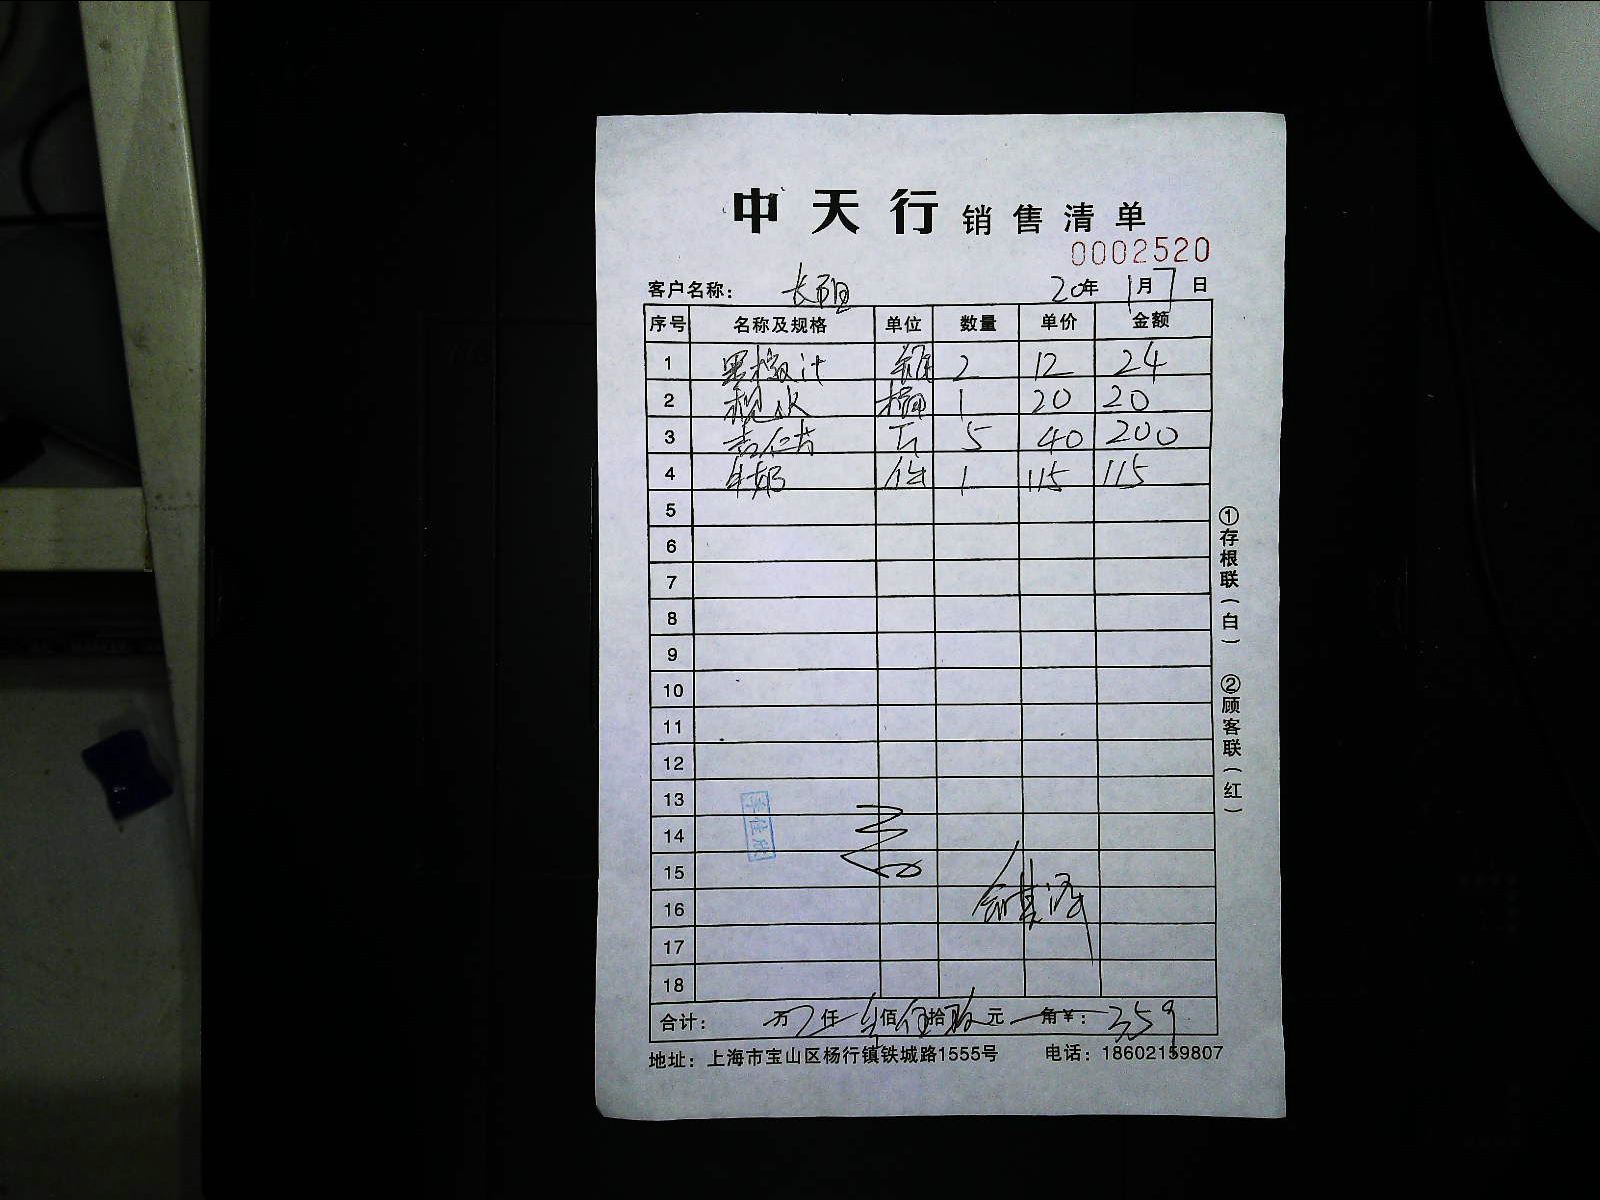 中天行 销售清单
0002520
客户名称： 长阳 20年 1月 7日
序号 名称及规格 单位 数量 单价 金额
1 黑椒汁 2 12 24
2 1 20 20
3 杏仁片 5 40 200
4 牛奶 件 1 115 115
5
6
7
8
9
10
11
12
13
14
15
16
17
18
合计： 万 仟 叁佰 伍拾 玖元 角￥： 359
地址：上海市宝山区杨行镇铁城路1555号 电话：18602159807
①存根联（白） ②顾客联（红）